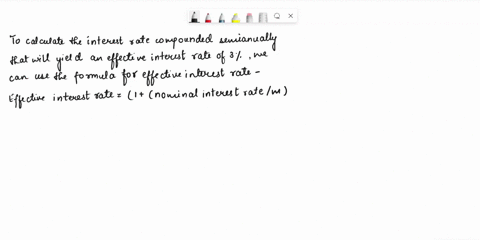 To calculate the interest rate compounded semianually
that will yield an effective interest rate of 3% , we
can use the formula for effective interest rate -
Effective interest rate = (1+ (nominal interest rate /m)